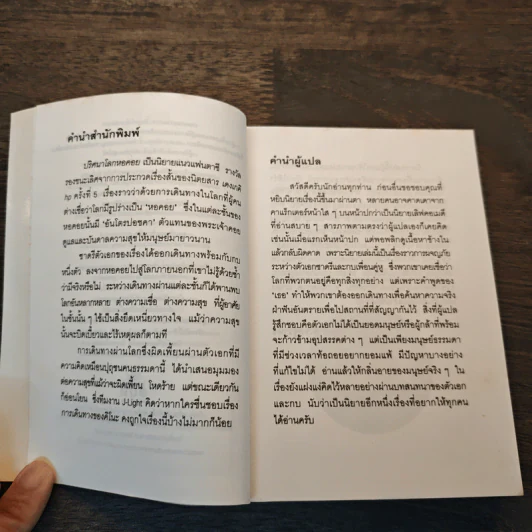 คำนำสำนักพิมพ์
ปริศนาโลกหอคอย เป็นนิยายแนวแฟนตาซี รางวัล
รองชนะเลิศจากการประกวดเรื่องสั้นของนิตยสาร เดงเกคิ
hp ครั้งที่ 5 เรื่องราวว่าด้วยการเดินทางในโลกที่ผู้คน
ต่างเชื่อว่าโลกมีรูปร่างเป็น 'หอคอย' ซึ่งในแต่ละชั้นของ
หอคอยนั้นมี 'อันโดรปอซคา' ตัวแทนของพระเจ้าคอย
ดูแลและบันดาลความสุขให้มนุษย์มายาวนาน
ชาตรีตัวเอกของเรื่องได้ออกเดินทางพร้อมกับกบ
หนึ่งตัว ลงจากหอคอยไปสู่โลกภายนอกที่เขาไม่รู้ด้วยซ้ำ
ว่ามีจริงหรือไม่ ระหว่างเดินทางผ่านแต่ละชั้นก็ได้พานพบ
โลกอันหลากหลาย ต่างความเชื่อ ต่างความสุข ที่ผู้อาศัย
ในชั้นนั้น ๆ ใช้เป็นสิ่งยึดเหนี่ยวทางใจ แม้ว่าความสุข
นั้นจะบิดเบี้ยวและไร้เหตุผลก็ตามที
การเดินทางผ่านโลกซึ่งผิดเพี้ยนผ่านตัวเอกที่มี
ความคิดเหมือนปุถุชนคนธรรมดานี้ ได้นำเสนอมุมมอง
ต่อความสุขที่แม้ว่าจะผิดเพี้ยน โหดร้าย แต่ขณะเดียวกัน
ก็อ่อนโยน ซึ่งทีมงาน J-Light คิดว่าหากใครชื่นชอบเรื่อง
การเดินทางของคิโนะ คงถูกใจเรื่องนี้บ้างไม่มากก็น้อย
คำนำผู้แปล
สวัสดีครับนักอ่านทุกท่าน ก่อนอื่นขอขอบคุณที่
หยิบนิยายเรื่องนี้ขึ้นมาผ่านตา หลายคนอาจคาดเดาจาก
คาแร็กเตอร์หน้าใส ๆ บนหน้าปกว่าเป็นนิยายเลิฟคอมเมดี
ที่อ่านสบาย ๆ สารภาพตามตรงว่าผู้แปลเองก็เคยคิด
เช่นนั้นเมื่อแรกเห็นหน้าปก แต่พอพลิกดูเนื้อหาข้างใน
แล้วกลับผิดคาด เพราะนิยายเล่มนี้เป็นเรื่องราวการผจญภัย
ระหว่างตัวเอกชาตรีและกบเพื่อนคู่หู ซึ่งพวกเขาเคยเชื่อว่า
โลกที่พวกตนอยู่คือทุกสิ่งทุกอย่าง แต่เพราะคำพูดของ
'เธอ' ทำให้พวกเขาต้องออกเดินทางเพื่อค้นหาความจริง
ฝ่าฟันอันตรายเพื่อไปสถานที่ที่สัญญากันไว้ สิ่งที่ผู้แปล
รู้สึกชอบคือตัวเอกไม่ได้เป็นยอดมนุษย์หรือผู้กล้าที่พร้อม
จะก้าวข้ามอุปสรรคต่าง ๆ แต่เป็นเพียงมนุษย์ธรรมดา
ที่มีช่วงเวลาท้อถอยอยากยอมแพ้ มีปัญหาบางอย่าง
ที่แก้ไขไม่ได้ อ่านแล้วให้กลิ่นอายของมนุษย์จริง ๆ ใน
เรื่องยังแฝงแง่คิดไว้หลายอย่างผ่านบทสนทนาของตัวเอก
และกบ นับว่าเป็นนิยายอีกหนึ่งเรื่องที่อยากให้ทุกคน
ได้อ่านครับ